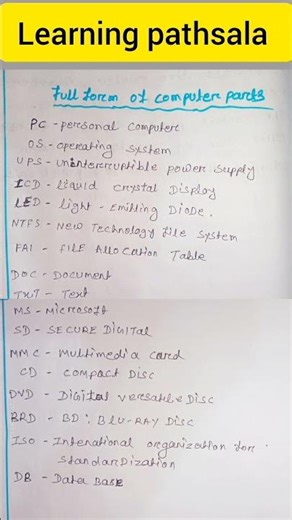 Learning pathsala
Full form of computer parts
PC - personal computer
OS - operating system
UPS - uninterruptible power supply
LCD - Liquid crystal Display
LED - Light - Emitting Diode.
NTFS - New Technology File System
FAT - FILE Allocation Table
DOC - Document
TXT - Text
MS - Microsoft
SD - SECURE DIGITAL
MMC - Multimedia card
CD - compact Disc
DVD - Digital versatile Disc
BRD - BD : BLU-RAY DISC
ISO - International organization for
StandarDization
DB - Data Base